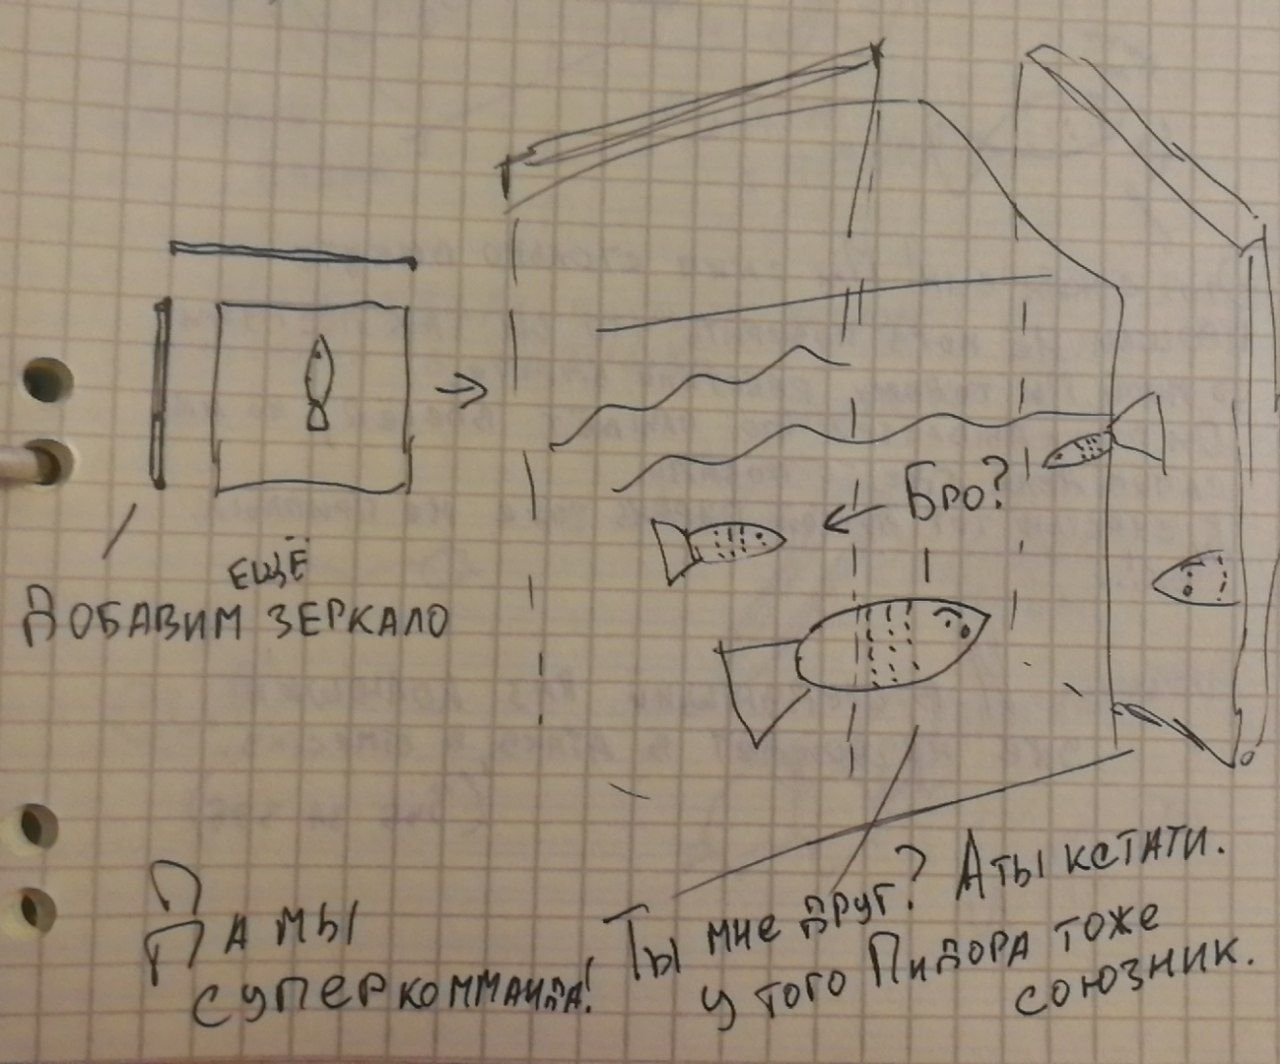 ЕЩЁ
ДОБАВИМ ЗЕРКАЛО
Бро?
ДА МЫ
СУПЕРКОММАНДА!
Ты мне друг? А ты кстати.
у того Пидора тоже
союзник.